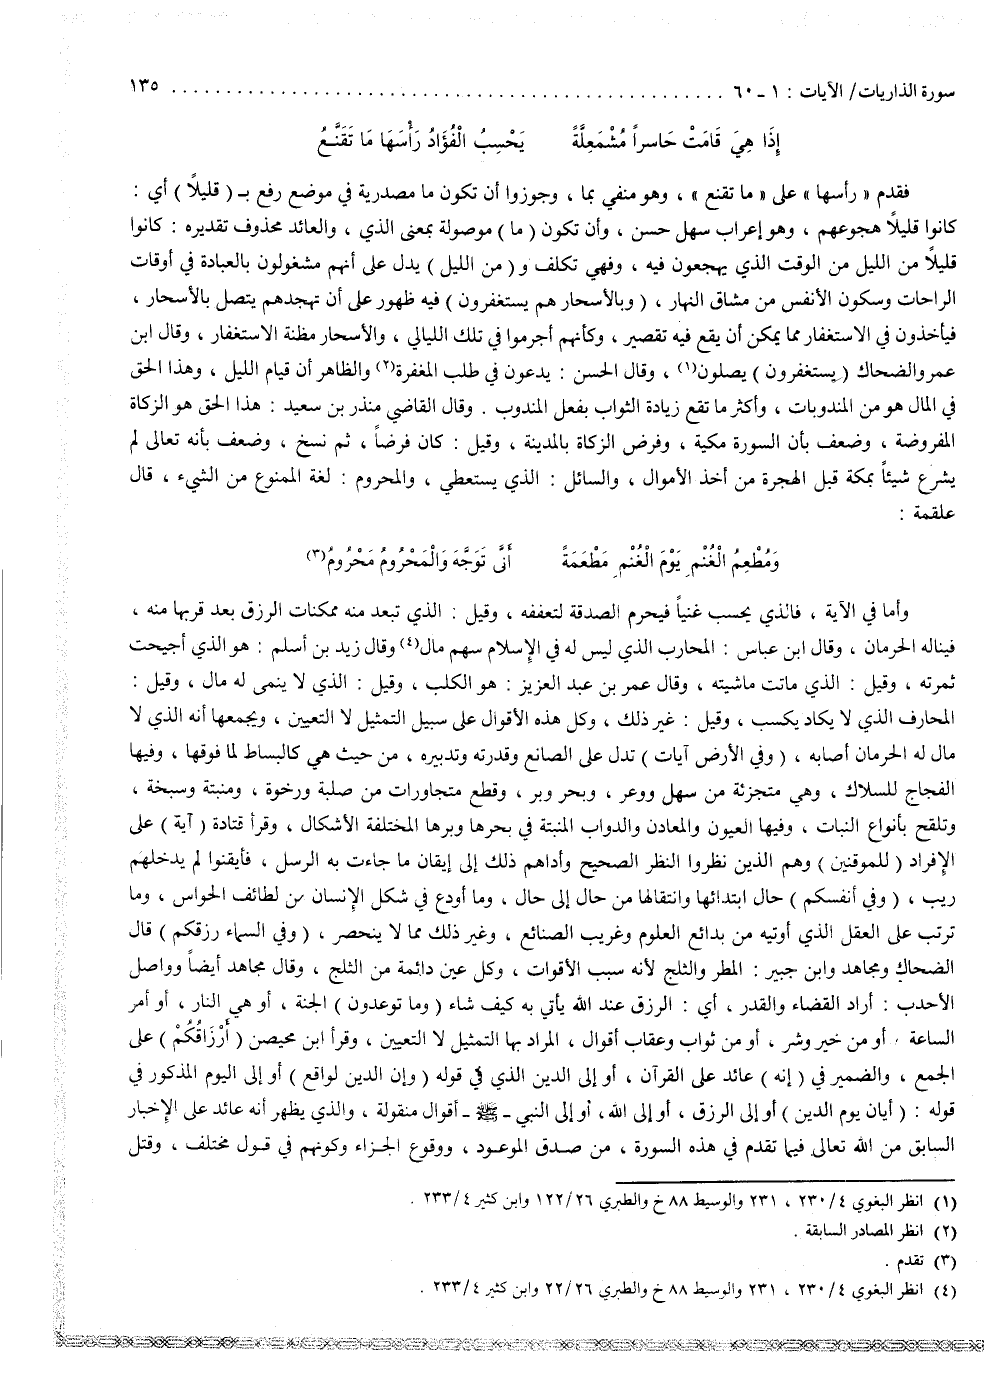 سورة الذاريات/ الآيات : ١ ـ ٦٠ . . . . . . . . . . . . . . . . . . . . . . . . . . . . . . . . . . . . . . . . . . . . . . . . ١٣٥
إِذَا هِيَ قَامَتْ حَاسراً مُشْمَعِلَّةً يَحْسِبُ الْفُؤَادُ رَأْسَهَا مَا تَقَنَّعُ
فقدم « رأسها » على « ما تقنع » ، وهو منفي بما ، وجوزوا أن تكون ما مصدرية في موضع رفع بـ ( قليلاً ) أي :
كانوا قليلاً هجوعهم ، وهو إعراب سهل حسن ، وأن تكون ( ما ) موصولة بمعنى الذي ، والعائد محذوف تقديره : كانوا
قليلاً من الليل من الوقت الذي يهجعون فيه ، وفهي تكلف و( من الليل ) يدل على أنهم مشغولون بالعبادة في أوقات
الراحات وسكون الأنفس من مشاق النهار ، ( وبالأسحار هم يستغفرون ) فيه ظهور على أن تهجدهم يتصل بالأسحار ،
فيأخذون في الاستغفار مما يمكن أن يقع فيه تقصير ، وكأنهم أجرموا في تلك الليالي ، والأسحار مظنة الاستغفار ، وقال ابن
عمر والضحاك ( يستغفرون ) يصلون(١) ، وقال الحسن : يدعون في طلب المغفرة(٢) والظاهر أن قيام الليل ، وهذا الحق
في المال هو من المندوبات ، وأكثر ما تقع زيادة الثواب بفعل المندوب . وقال القاضي منذر بن سعيد : هذا الحق هو الزكاة
المفروضة ، وضعف بأن السورة مكية ، وفرض الزكاة بالمدينة ، وقيل : كان فرضاً ، ثم نسخ ، وضعف بأنه تعالى لم
يشرع شيئاً بمكة قبل الهجرة من أخذ الأموال ، والسائل : الذي يستعطي ، والمحروم : لغة الممنوع من الشيء ، قال
علقمة :
وَمُطْعِمُ الْغُنْمِ يَوْمَ الْغُنْمِ مَطْعَمَةً أَنَّى تَوَجَّهَ وَالْمَحْرُومُ مَحْرُومُ(٣)
وأما في الآية ، فالذي يحسب غنياً فيحرم الصدقة لتعففه ، وقيل : الذي تبعد منه ممكنات الرزق بعد قربها منه ،
فيناله الحرمان ، وقال ابن عباس : المحارب الذي ليس له في الإسلام سهم مال(٤) وقال زيد بن أسلم : هو الذي أجيحت
ثمرته ، وقيل : الذي ماتت ماشيته ، وقال عمر بن عبد العزيز : هو الكلب ، وقيل : الذي لا ينمى له مال ، وقيل :
المحارف الذي لا يكاد يكسب ، وقيل : غير ذلك ، وكل هذه الأقوال على سبيل التمثيل لا التعيين ، ويجمعها أنه الذي لا
مال له الحرمان أصابه ، ( وفي الأرض آيات ) تدل على الصانع وقدرته وتدبيره ، من حيث هي كالبساط لما فوقها ، وفيها
الفجاج للسلاك ، وهي متجزئة من سهل ووعر ، وبحر وبر ، وقطع متجاورات من صلبة ورخوة ، ومنبتة وسبخة ،
وتلقح بأنواع النبات ، وفيها العيون والمعادن والدواب المنبتة في بحرها وبرها المختلفة الأشكال ، وقرأ قتادة ( آية ) على
الإفراد ( للموقنين ) وهم الذين نظروا النظر الصحيح وأداهم ذلك إلى إيقان ما جاءت به الرسل ، فأيقنوا لم يدخلهم
ريب ، ( وفي أنفسكم ) حال ابتدائها وانتقالها من حال إلى حال ، وما أودع في شكل الإنسان من لطائف الحواس ، وما
ترتب على العقل الذي أوتيه من بدائع العلوم وغريب الصنائع ، وغير ذلك مما لا ينحصر ، ( وفي السماء رزقكم ) قال
الضحاك ومجاهد وابن جبير : المطر والثلج لأنه سبب الأقوات ، وكل عين دائمة من الثلج ، وقال مجاهد أيضاً وواصل
الأحدب : أراد القضاء والقدر ، أي : الرزق عند الله يأتي به كيف شاء ( وما توعدون ) الجنة ، أو هي النار ، أو أمر
الساعة ، أو من خير وشر ، أو من ثواب وعقاب أقوال ، المراد بها التمثيل لا التعيين ، وقرأ ابن محيصن ( أَرْزَاقُكُمْ ) على
الجمع ، والضمير في ( إنه ) عائد على القرآن ، أو إلى الدين الذي في قوله ( وإن الدين لواقع ) أو إلى اليوم المذكور في
قوله : ( أيان يوم الدين ) أو إلى الرزق ، أو إلى الله، أو إلى النبي ـ ﷺ ـ أقوال منقولة ، والذي يظهر أنه عائد على الإخبار
السابق من الله تعالى فيما تقدم في هذه السورة ، من صدق الموعود ، ووقوع الجزاء وكونهم في قول مختلف ، وقتل
(١) انظر البغوي ٢٣٠/٤ ، ٢٣١ والوسيط ٨٨ خ والطبري ١٢٢/٢٦ وابن كثير ٢٣٣/٤ .
(٢) انظر المصادر السابقة .
(٣) تقدم .
(٤) انظر البغوي ٢٣٠/٤ ، ٢٣١ والوسيط ٨٨ خ والطبري ٢٢/٢٦ وابن كثير ٢٣٣/٤ .